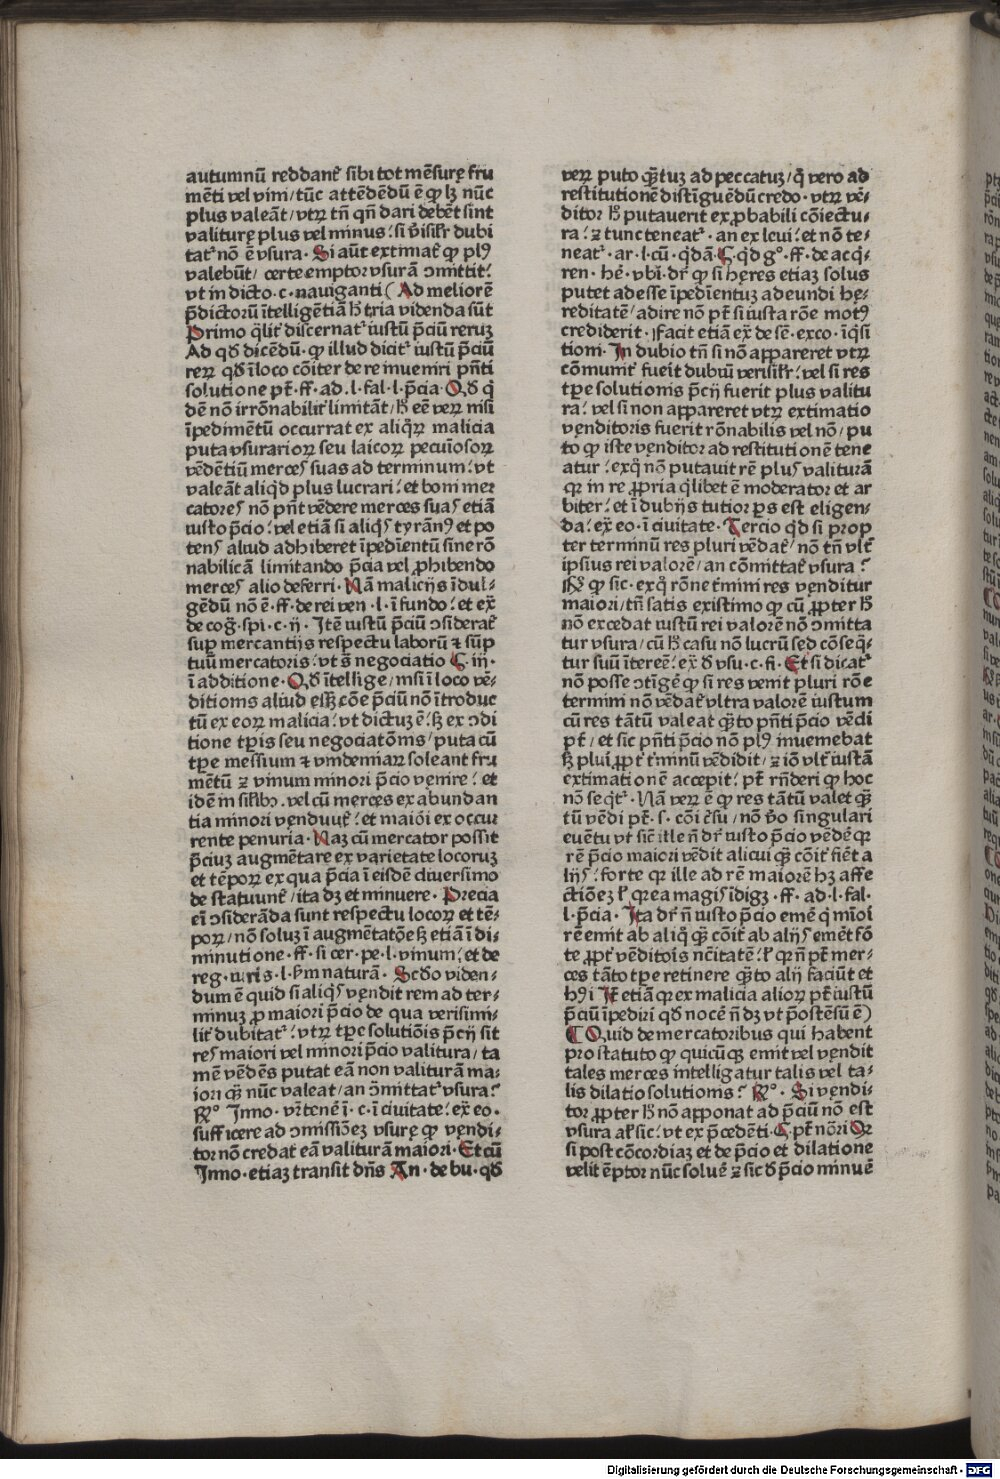 autumnū reddant᷑ sibi tot mēsurę fru
mēti vel vini/tūc attēdēdū ē ꝙ lꝫ nūc
plus valeāt/vtꝝ tn̄ qn̄ dari debēt sint
valiturę plus vel minus/si v̓isilr̄ dubi
tat᷑ nō ē vsura· Si aūt extimat᷑ ꝙ plꝰ
valebūt/ certe emptor vsurā ɔmittit/
vt in dicto·c·nauiganti( Ad meliorē
p̄dictorū ītelligētiā h̄ tria videnda sūt
Primo q̄lit᷑ discernat᷑ iustū p̄ciū reruꝫ
Ad qd̄ dicēdū·ꝙ illud dicit᷑ iustū p̄ciū
reꝝ qd̄ ī loco cōiter de re inueniri pn̄ti
solutione pt̄·ff·ad·l·fal·l·p̄cia·Qd̄ q̇
dē nō irrōnabilit᷑ limitāt/h̄ eē veꝝ nisi
īpedimētū occurrat ex aliq̄ꝝ malicia
puta vsurarioꝝ seu laicoꝝ pecuīosoꝝ
vēdētiū merces suas ad terminum/vt
valeāt aliq̇d plus lucrari/et boni mer
catores nō pn̄t vēdere merces suas etiā
iusto p̄cio/vel etiā si aliq̇s tyrānꝰ et po
tens aliud adhiberet īpedīentū sine rō
nabili cā limitando p̄cia vel ꝓhibendo
merces alio deferri· Nā malicijs īdul⸗
gēdū nō ē·ff·de rei ven·l·ī fundo/et ex̄
de cog̅·spi·c·ij· Itē iustū p̄ciū ɔsiderat᷑
suꝑ mercantijs respectu laborū ⁊ sūp
tuū mercatoris/vt s̄ negociatio C·iij·
ī additione· Qd̄ ītellige/nisi ī loco vē⸗
ditionis aliud essꝫ cōe p̄ciū nō ītroduc
tū ex eoꝝ malicia/vt dictuꝫ ē/sꝫ ex ɔdi
tione tꝑis seu negociatōnis/puta cū
tꝑe messium ⁊ vindemiaꝝ soleant fru
mētū ⁊ vinum minori p̄cio venire/et
idē in silibꝰ·vel cū merces ex abundan
tia minori vendunt᷑/et maiori ex occur
rente penuria· Naꝫ cū mercator possit
p̄ciuꝫ augmētare ex varietate locoruꝫ
et tēpoꝝ ex qua p̄cia ī eisdē diuersimo
de statuunt᷑/ita dꝫ et minuere· Precia
eī ɔsiderāda sunt respectu locoꝝ et tē⸗
poꝝ/nō soluꝫ ī augmētatōe sꝫ etiā ī di⸗
minutione·ff·si cer·pe·l·vinum/et de
reg·iuris·l·s̄m naturā· Scd̄o viden⸗
dum ē quid si aliq̇s vendit rem ad ter⸗
minuꝫ ꝓ maiori p̄cio de qua verisimi⸗
lit᷑ dubitat᷑/vtꝝ tꝑe solutiōis p̄cij sit
res maiori vel minori p̄cio valitura/ta
mē vēdēs putat eā non valiturā ma⸗
iori qꝫ nūc valeat/an ɔmittat᷑ vsura?
R̄ᵒ Inno·vr̄ tenē ī·c·ī ciuitate/ex̄ eo·
sufficere ad ɔmissiōeꝫ vsurę ꝙ vendi⸗
tor nō credat eā valiturā maiori· Et cū
Inno·etiaꝫ transit dn̄s An·de bu·qd̄
veꝝ puto quātuꝫ ad peccatuꝫ/q̇ vero ad
restitutionē distīguēdū credo·vtꝝ vē⸗
ditor h̄ putauerit ex ꝓbabili cōiectu⸗
ra/⁊ tunc teneat᷑·an ex leui/et nō te⸗
neat᷑·ar·l·cū·q̇dā·C·q̇d gᵒ·ff·de acq̇⸗
ren·hē·vbi·dr̄ ꝙ si hęres etiaꝫ solus
putet adesse īpedīentuꝫ adeundi hę⸗
reditatē/adire nō pt̄ si iusta rōe motꝰ
crediderit·Facit etiā ex̄ de sē·exco·īq̇si
tioni· In dubio tn̄ si nō appareret vtꝝ
cōmunit᷑ fueit dubiū verisilr̄/vel si res
tꝑe solutionis p̄cij fuerit plus valitu
ra/vel si non appareret vtꝝ extimatio
venditoris fuerit rōnabilis vel nō/pu
to ꝙ iste venditor ad restitutionē tene
atur/exq̇ nō putauit rē plus valiturā
qr in re ꝓpria q̇libet ē moderator et ar
biter/et ī dubijs tutior ꝑs est eligen⸗
da/ex̄ eo·ī ciuitate· Tercio q̇d si prop
ter terminū res pluri vēdat᷑/nō tn̄ vlt᷑
ipsius rei valorē/an cōmittat᷑ vsura?
R̄ ꝙ sic·exq̇ rōne t᷑mini res venditur
maiori/tn̄ satis existimo ꝙ cū ꝓpter h̄
nō excedat iustū rei valorē nō ɔmitta
tur vsura/cū h̄ casu nō lucrū sed cōseq̄⸗
tur suū īterēē/ex̄ d̄ vsu·c·fi· Et si dicat᷑
nō posse ɔtīgē ꝙ si res venit pluri rōe
termini nō vēdat᷑ vltra valorē iustum
cū res tātū valeat quāto pn̄ti p̄cio vēdi
pt̄/et sic pn̄ti p̄cio nō plꝰ inuemebat
sꝫ pluri ꝓpt᷑ t᷑minū vēdidit/⁊ iō vlt᷑ iustā
extimationē accepit/pt̄ rn̄deri ꝙ hoc
nō seq̇t᷑· Nā veꝝ ē ꝙ res tātū valet quā
tū vēdi pt̄·s·cōi c̄su/nō v̓o singulari
euētu vt sic ille n̄ dr̄ iusto p̄cio vēdē qr
rē p̄cio maiori vēdit alicui quā cōit᷑ fiēt a
lijs/forte qr ille ad rē maiorē hꝫ affe
ctiōeꝫ l᷑ qr ea magis īdigꝫ·ff·ad·l·fal·
l·p̄cia· Ita dr̄ n̄ iusto p̄cio emē q̇ mīori
rē emit ab aliq̇ quā cōit᷑ ab alijs emēt fō
te ꝓpt᷑ vēditoris nc̄itatē/l᷑ qr n̄ pt̄ mer⸗
ces tāto tꝑe retinere quāto alij faciūt et
hꝰi It̄ etiā qr ex malicia alioꝝ pt̄ iustū
p̄ciū īpediri qd̄ nocē n̄ dꝫ vt p̄ostēsū ē)
¶Quid de mercatoribus qui habent
pro statuto ꝙ quicūqꝫ emit vel vendit
tales merces intelligatur talis vel ta⸗
lis dilatio solutionis? R̄ᵒ· Si vendi⸗
tor ꝓpter h̄ nō apponat ad p̄ciū nō est
vsura al᷑ sic/vt ex p̄cedēti·C·pt̄ nōri Qr
si post cōcordiaꝫ et de p̄cio et dilatione
velit ēptor nūc soluē ⁊ sic d̄ p̄cio minuē
Digitalisierung gefördert durch die Deutsche Forschungsgemeinschaft · DFG